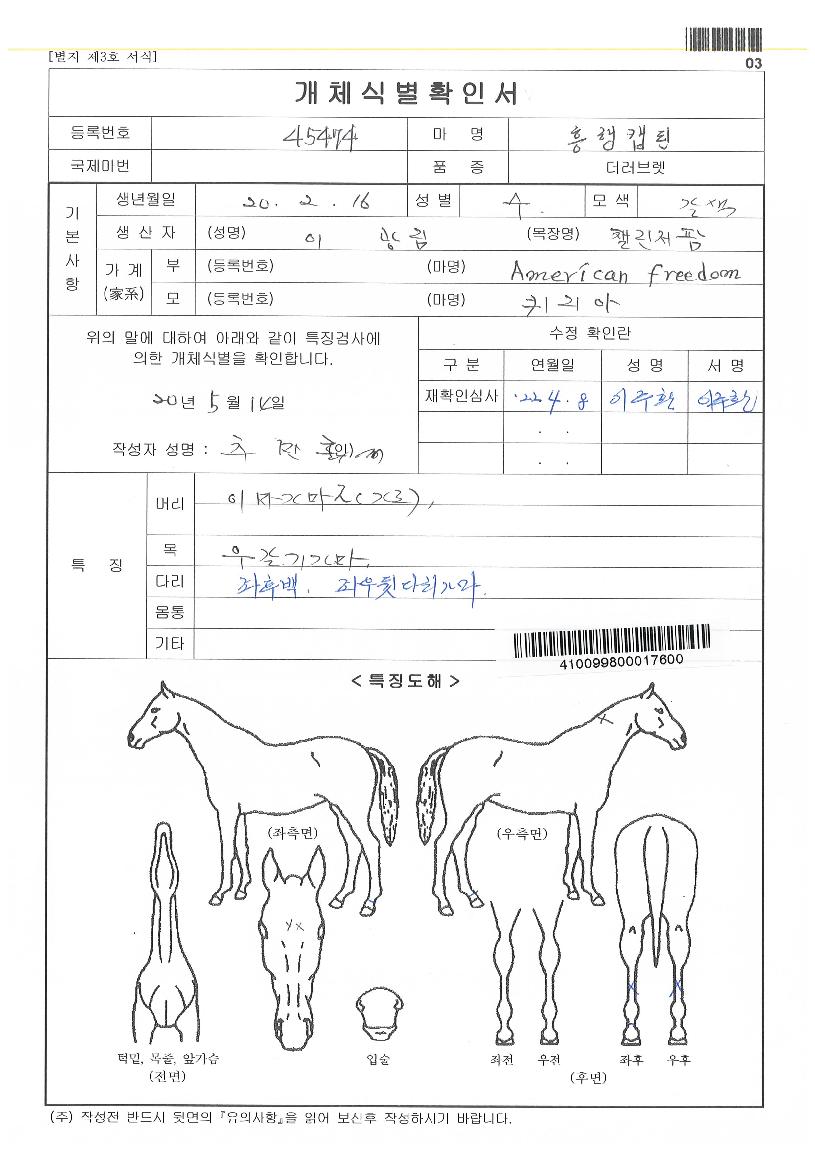 [별지 제3호 서식]
03
개체식별확인서
등록번호 45474 마 명 흥행캡틴
국제마번 품 종 더러브렛
기본사항
생년월일 20. 2. 16 성별 수. 모색 갈색
생 산 자 (성명) 이 광림 (목장명) 챌린저팜
가 계 (家系)
부 (등록번호) (마명) American freedom
모 (등록번호) (마명) 키리아
위의 말에 대하여 아래와 같이 특징검사에
의한 개체식별을 확인합니다.
20년 5월 14일
작성자 성명 :
수정 확인란
구 분 연월일 성 명 서 명
재확인심사 '22. 4. 8 이주환 이주환
. .
. .
특 징
머리
목 우갈기가마.
다리 좌후백. 좌우뒷다리가마.
몸통
기타
410099800017600
< 특징도해 >
(좌측면) (우측면)
턱밑, 목줄, 앞가슴 입술 좌전 우전 좌후 우후
(전면) (후면)
(주) 작성전 반드시 뒷면의 『유의사항』을 읽어 보신후 작성하시기 바랍니다.